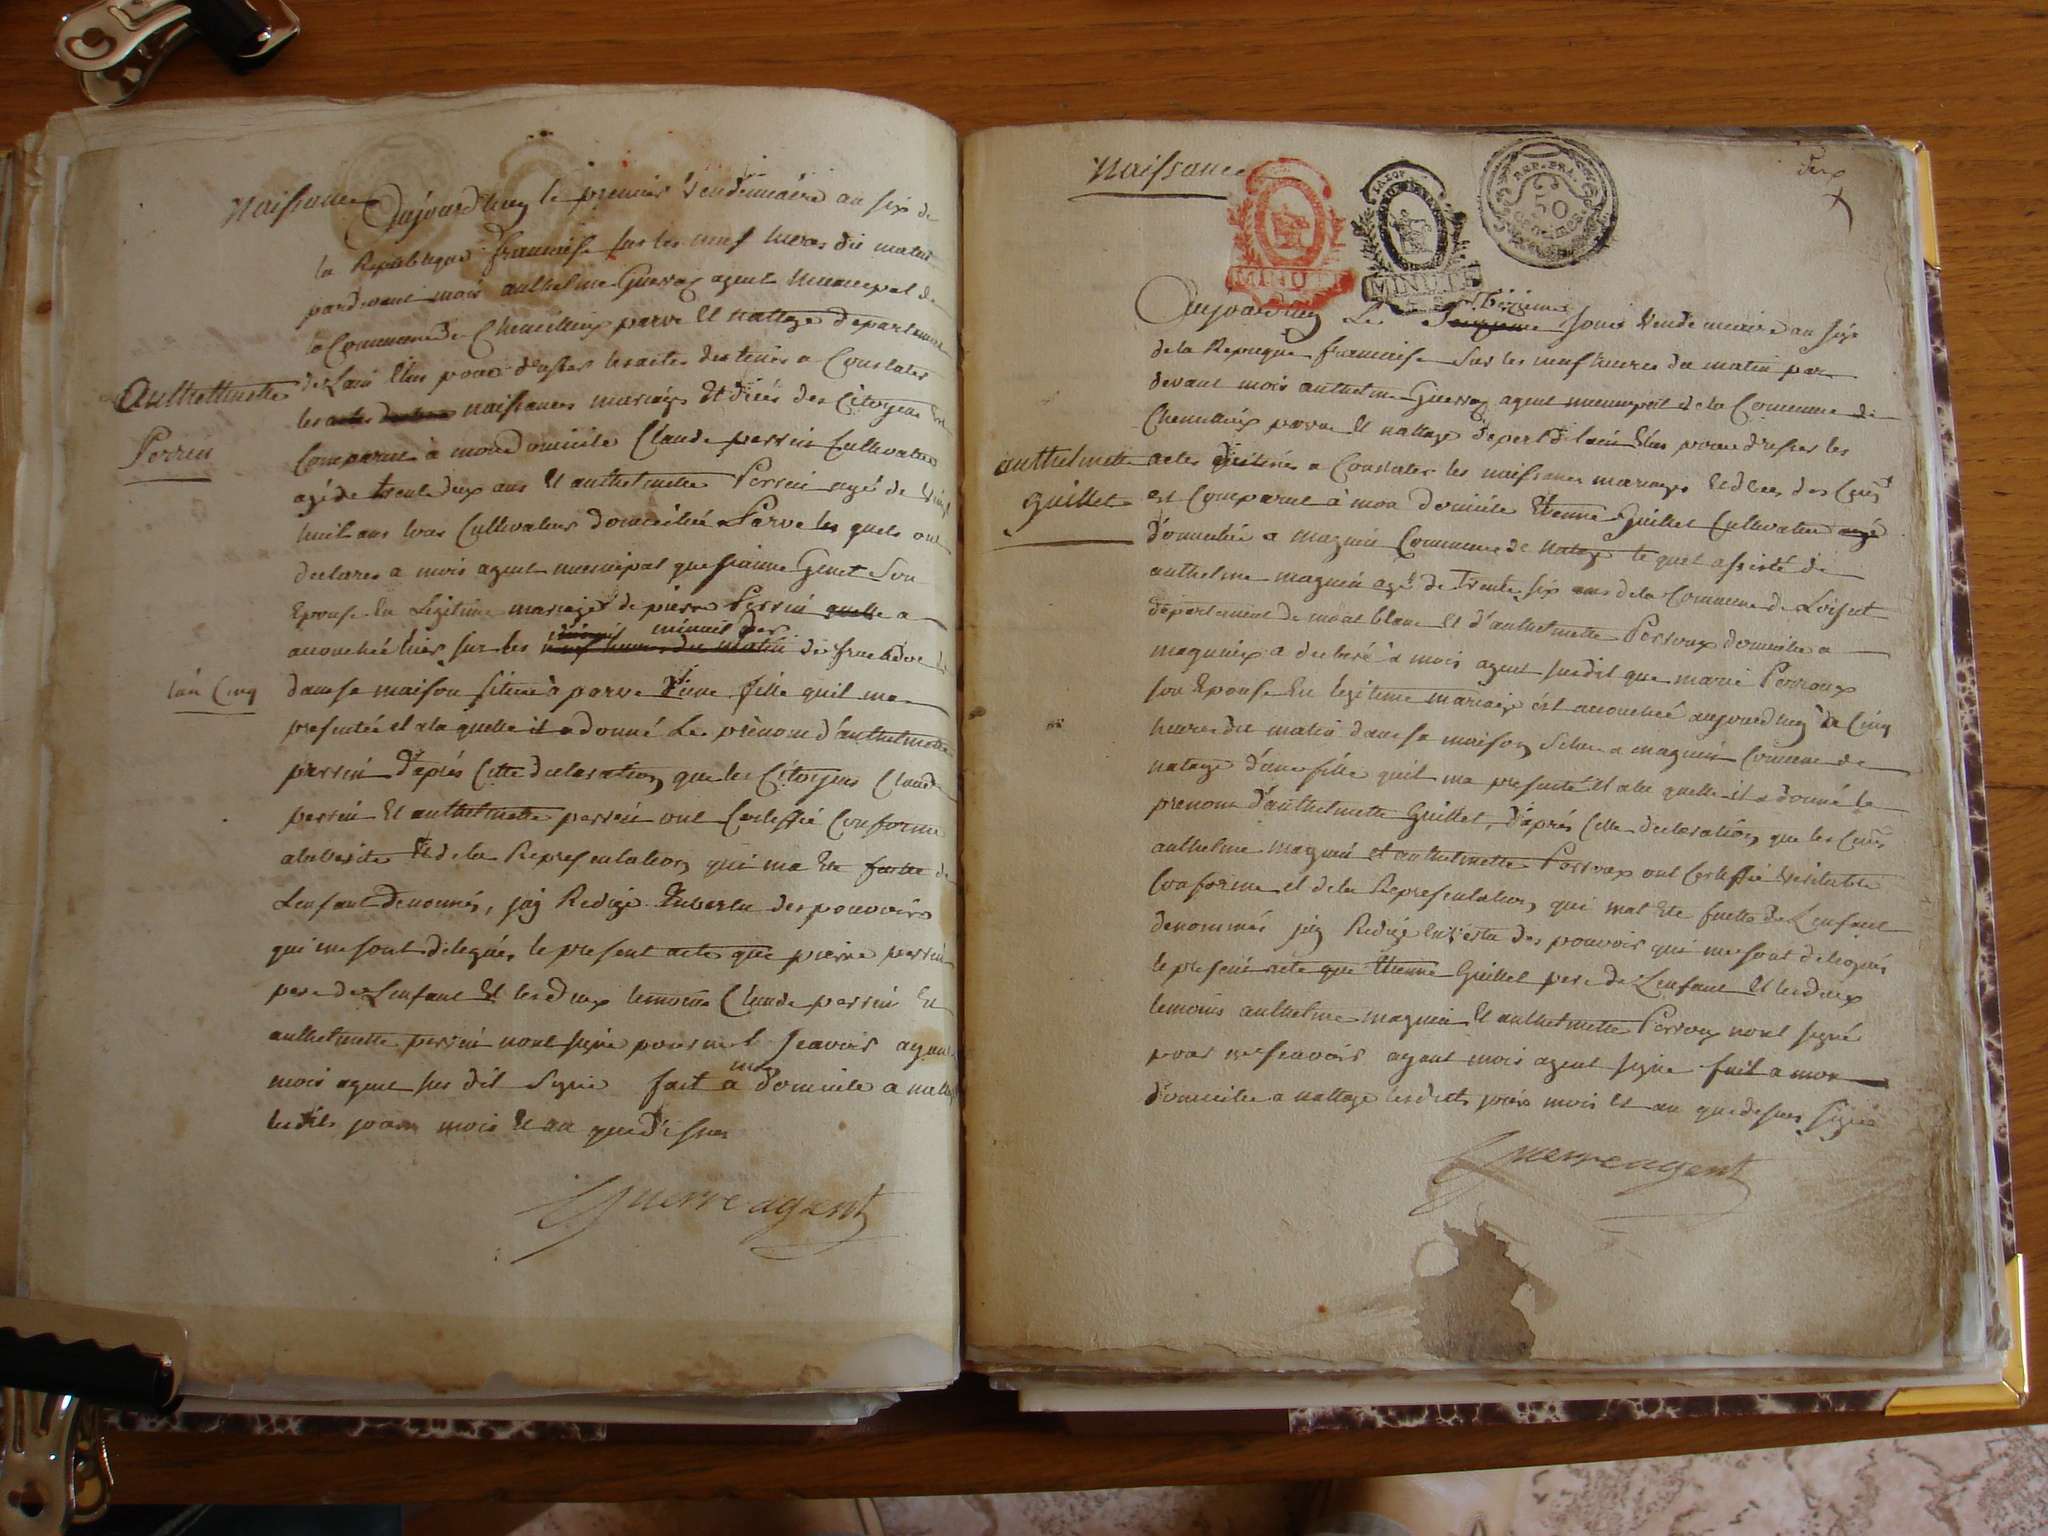 Naissance
Aujourd'huy le premier Vendemiaire an six de
la Republique francaise sur les neuf heures du matin
pardevant mois anthelme Guerre agent municipal de
la Commune de Chemilieux parve Et nattage departement
de Lain Elus pour dresser les actes destinés a Constater
Anthelmette
Perrin
les naissances mariages Et décés des Citoyens
Comparut à mon domicile Claude perrin Cultivateur
agé de trente deux ans Et anthelmette Perrin agé de vingt
huit ans tous Cultivateurs domicilié a Parve les quels ont
declares a mois agent municipal que Genet Son
Epouse En Legitime mariage de pierre Perrin a
accouchée hier sur les minuit
l'an Cinq
dans sa maison située à parve d'une fille quil ma
presentée et a la quelle il a donné Le prénom d'anthelmette
perrin d'après Cette declaration que les Citoyens Claude
perrin Et anthelmette perrin ont Certiffié Conforme
a la verite Et de la Representation qui ma Ete faitte de
Lenfant denommés, jay Redigé Envertu des pouvoirs
qui me sont delegués le present acte que pierre perrin
pere de Lenfant Et les deux temoins Claude perrin Et
anthelmette perrin nont signé pour ne scavoir ayant
mois agent sus dit Signé fait a mon domicile a nattage
les dits jour mois Et an que dessus
Guerre agent
Naissance
MINUTE
MINUTE
REP. FRA.
50
Centimes
deux
Aujourd'huy Le jour Vendemiaire an six
de la Repueque francaise Sur les neuf heures du matin par
devant mois anthelme Guerre agent municipal de la Commune de
Chemilieux parve Et nattage depert de lain Elus pour dresser les
anthelmette
Guillet
actes destinés a Constater les naissances mariages Et deces des
est Comparut à mon domicile Etienne Guillet Cultivateur
domicilié a magnin Commune de natage le quel assisté de
anthelme magnin agé de trente six ans de la Commune de Loisut
departement de mont blanc et d'anthelmette Perroux domicilie a
magnieux a declaré à mois agent susdit que marie Perroux
son Epouse En legitime mariage est accouchée aujourdhuy a Cinq
heures du matin dans sa maison Située a magnin Commune de
natage d'une fille quil ma presenté Et a la quelle il a donné le
prenom d'anthelmette Guillet, d'après Cette declaration que les
anthelme magnin et anthelmette Perroux ont Certiffié veritable
Conforme et de la Representation qui mat Ete faitte de Lenfant
denommés jay Redigé En vertu des pouvoir qui me sont delegués
le present acte que Etienne Guillet pere de Lenfant Et les deux
temoins anthelme magnin Et anthelmette Perroux nont signé
pour ne scavoir ayant mois agent signe fait a mon
domicile a nattage lesdits jours mois Et an que dessus Signé
Guerre agent